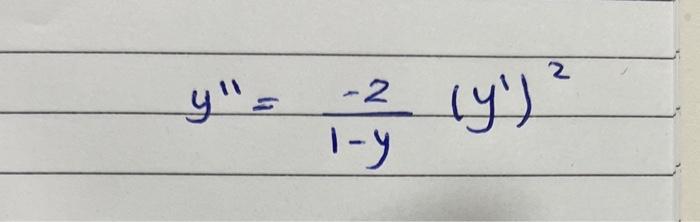 y'' = -2/(1-y) (y')²